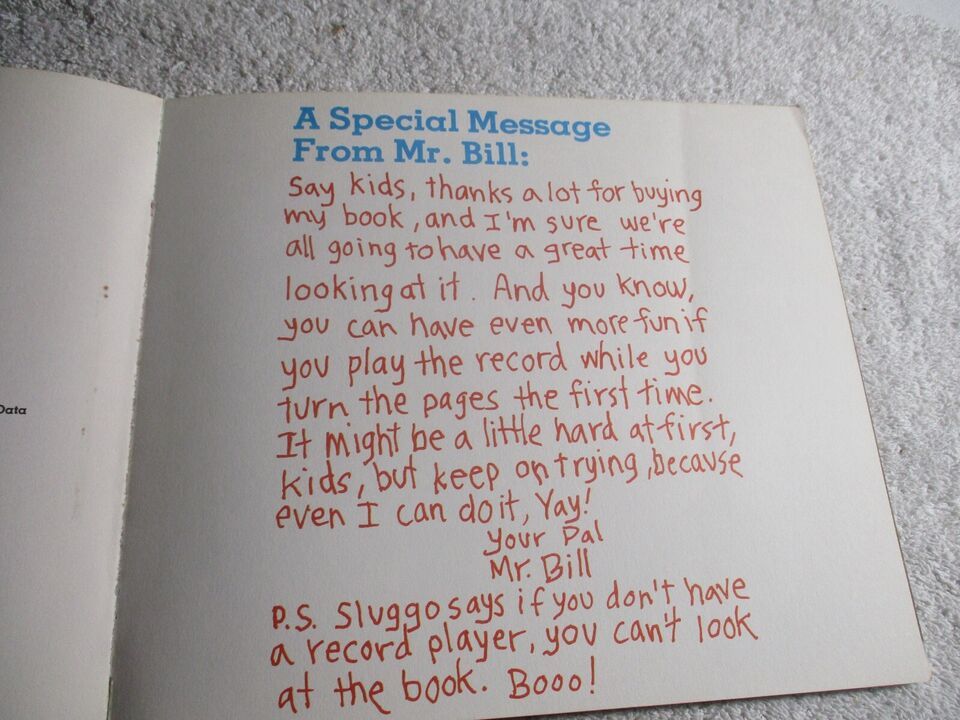 A Special Message
From Mr. Bill:
Say kids, thanks a lot for buying
my book, and I'm sure we're
all going to have a great time
looking at it. And you know,
you can have even more fun if
you play the record while you
turn the pages the first time.
It might be a little hard at first,
kids, but keep on trying, because
even I can do it, Yay!
Your Pal
Mr. Bill
P.S. Sluggo says if you don't have
a record player, you can't look
at the book. Booo!
Data